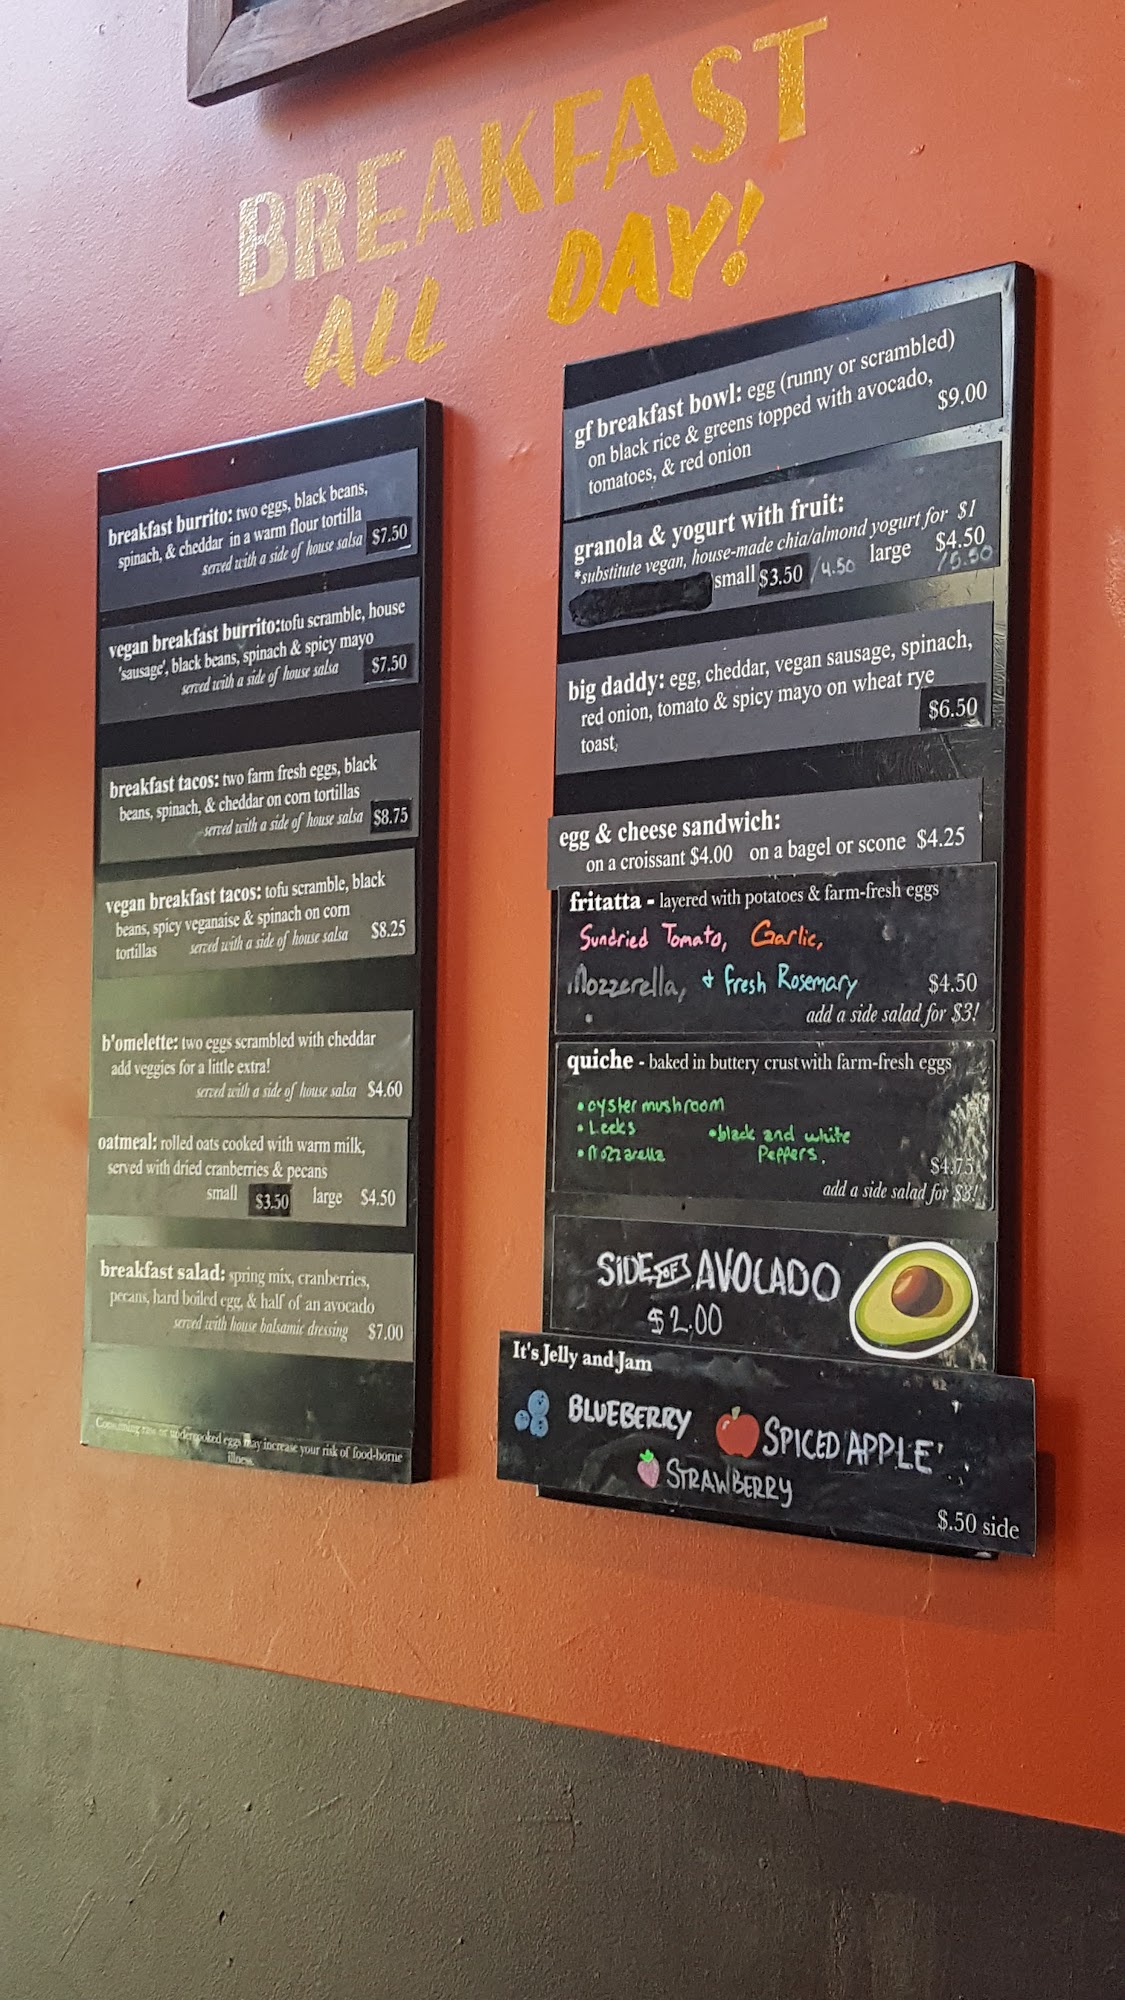 BREAKFAST
ALL DAY!
breakfast burrito: two eggs, black beans,
spinach, & cheddar in a warm flour tortilla
served with a side of house salsa $7.50
vegan breakfast burrito:tofu scramble, house
'sausage', black beans, spinach & spicy mayo
served with a side of house salsa $7.50
breakfast tacos: two farm fresh eggs, black
beans, spinach, & cheddar on corn tortillas
served with a side of house salsa $8.75
vegan breakfast tacos: tofu scramble, black
beans, spicy veganaise & spinach on corn
tortillas served with a side of house salsa $8.25
b'omelette: two eggs scrambled with cheddar
add veggies for a little extra!
served with a side of house salsa $4.60
oatmeal: rolled oats cooked with warm milk,
served with dried cranberries & pecans
small $3.50 large $4.50
breakfast salad: spring mix, cranberries,
pecans, hard boiled egg, & half of an avocado
served with house balsamic dressing $7.00
Consuming raw or undercooked eggs may increase your risk of food-borne
illness.
gf breakfast bowl: egg (runny or scrambled)
on black rice & greens topped with avocado,
tomatoes, & red onion $9.00
granola & yogurt with fruit:
*substitute vegan, house-made chia/almond yogurt for $1
small $3.50 /4.50 large $4.50
/5.50
big daddy: egg, cheddar, vegan sausage, spinach,
red onion, tomato & spicy mayo on wheat rye
toast, $6.50
egg & cheese sandwich:
on a croissant $4.00 on a bagel or scone $4.25
fritatta - layered with potatoes & farm-fresh eggs
Sundried Tomato, Garlic,
Mozzerella, + fresh Rosemary $4.50
add a side salad for $3!
quiche - baked in buttery crust with farm-fresh eggs
• oyster mushroom
• Leeks • black and white
• Mozzarella Peppers.
$4.75
add a side salad for $3!
SIDE OF AVOCADO
$2.00
It's Jelly and Jam
BLUEBERRY SPICED APPLE
STRAWBERRY
$.50 side